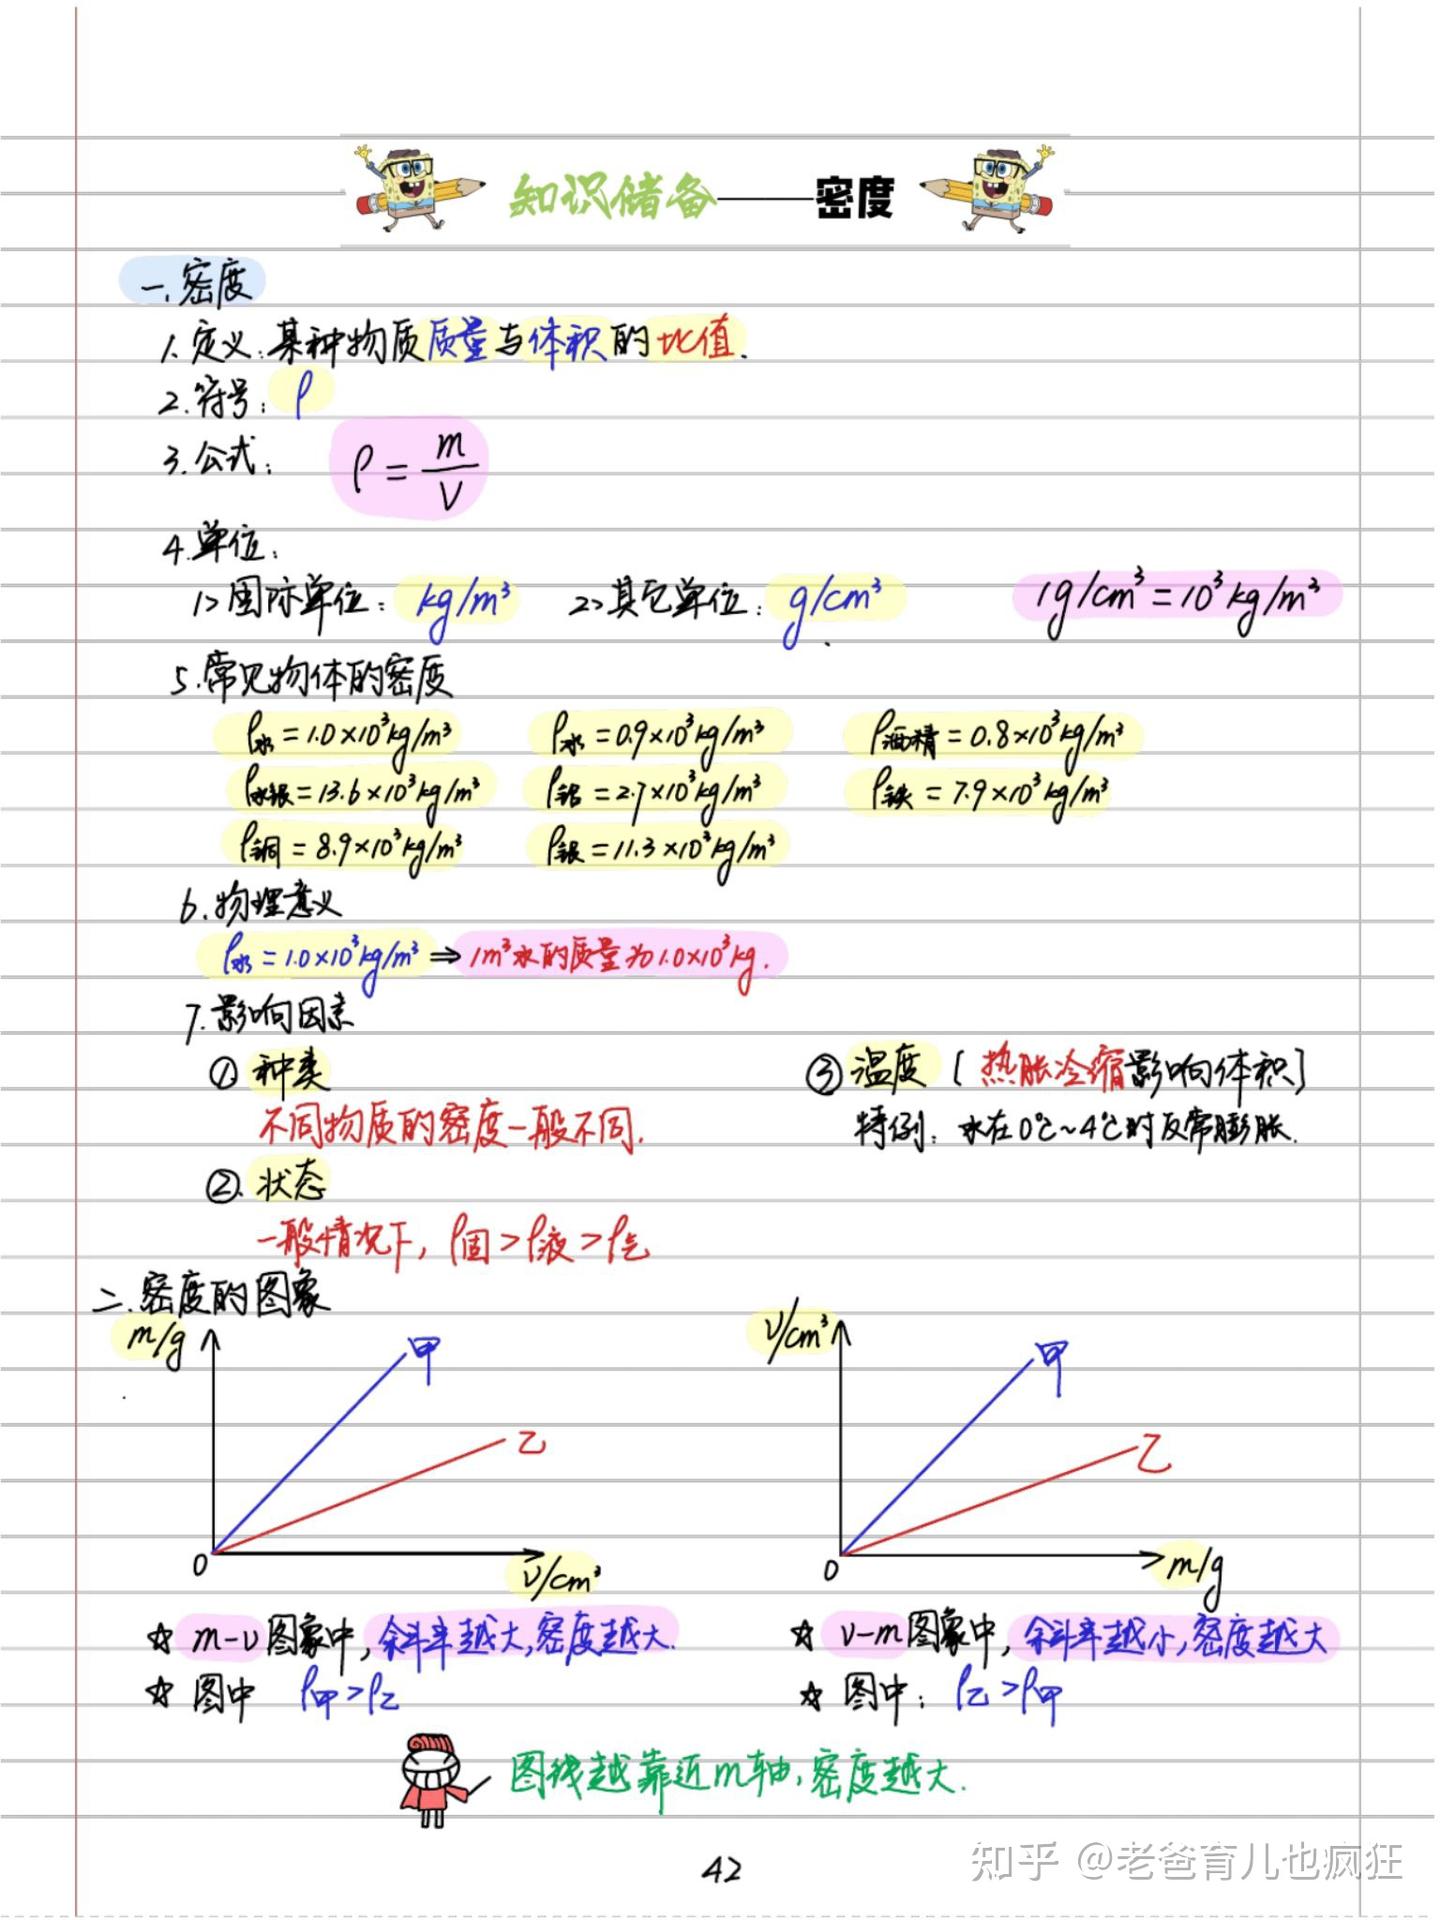 知识储备——密度
一.密度
1.定义:某种物质质量与体积的比值.
2.符号: ρ
3.公式: ρ = m/V
4.单位:
1> 国际单位: kg/m³ 2> 其它单位: g/cm³ 1g/cm³ = 10³ kg/m³
5.常见物体的密度
ρ水 = 1.0×10³kg/m³ ρ冰 = 0.9×10³kg/m³ ρ酒精 = 0.8×10³kg/m³
ρ水银 = 13.6×10³kg/m³ ρ铝 = 2.7×10³kg/m³ ρ铁 = 7.9×10³kg/m³
ρ铜 = 8.9×10³kg/m³ ρ银 = 11.3×10³kg/m³
6.物理意义
ρ水 = 1.0×10³kg/m³ ⇒ 1m³水的质量为1.0×10³kg.
7.影响因素
① 种类 ③ 温度 [热胀冷缩影响体积]
不同物质的密度一般不同. 特例: 水在0℃~4℃时反常膨胀.
②.状态
一般情况下, ρ固 > ρ液 > ρ气
二.密度的图象
m/g 甲 乙 0 V/cm³
V/cm³ 甲 乙 0 m/g
☆ m-v图象中,斜率越大,密度越大. ☆ v-m图象中,斜率越小,密度越大
☆ 图中 ρ甲 > ρ乙 ☆ 图中: ρ乙 > ρ甲
图线越靠近m轴,密度越大.
42
知乎 @老爸育儿也疯狂